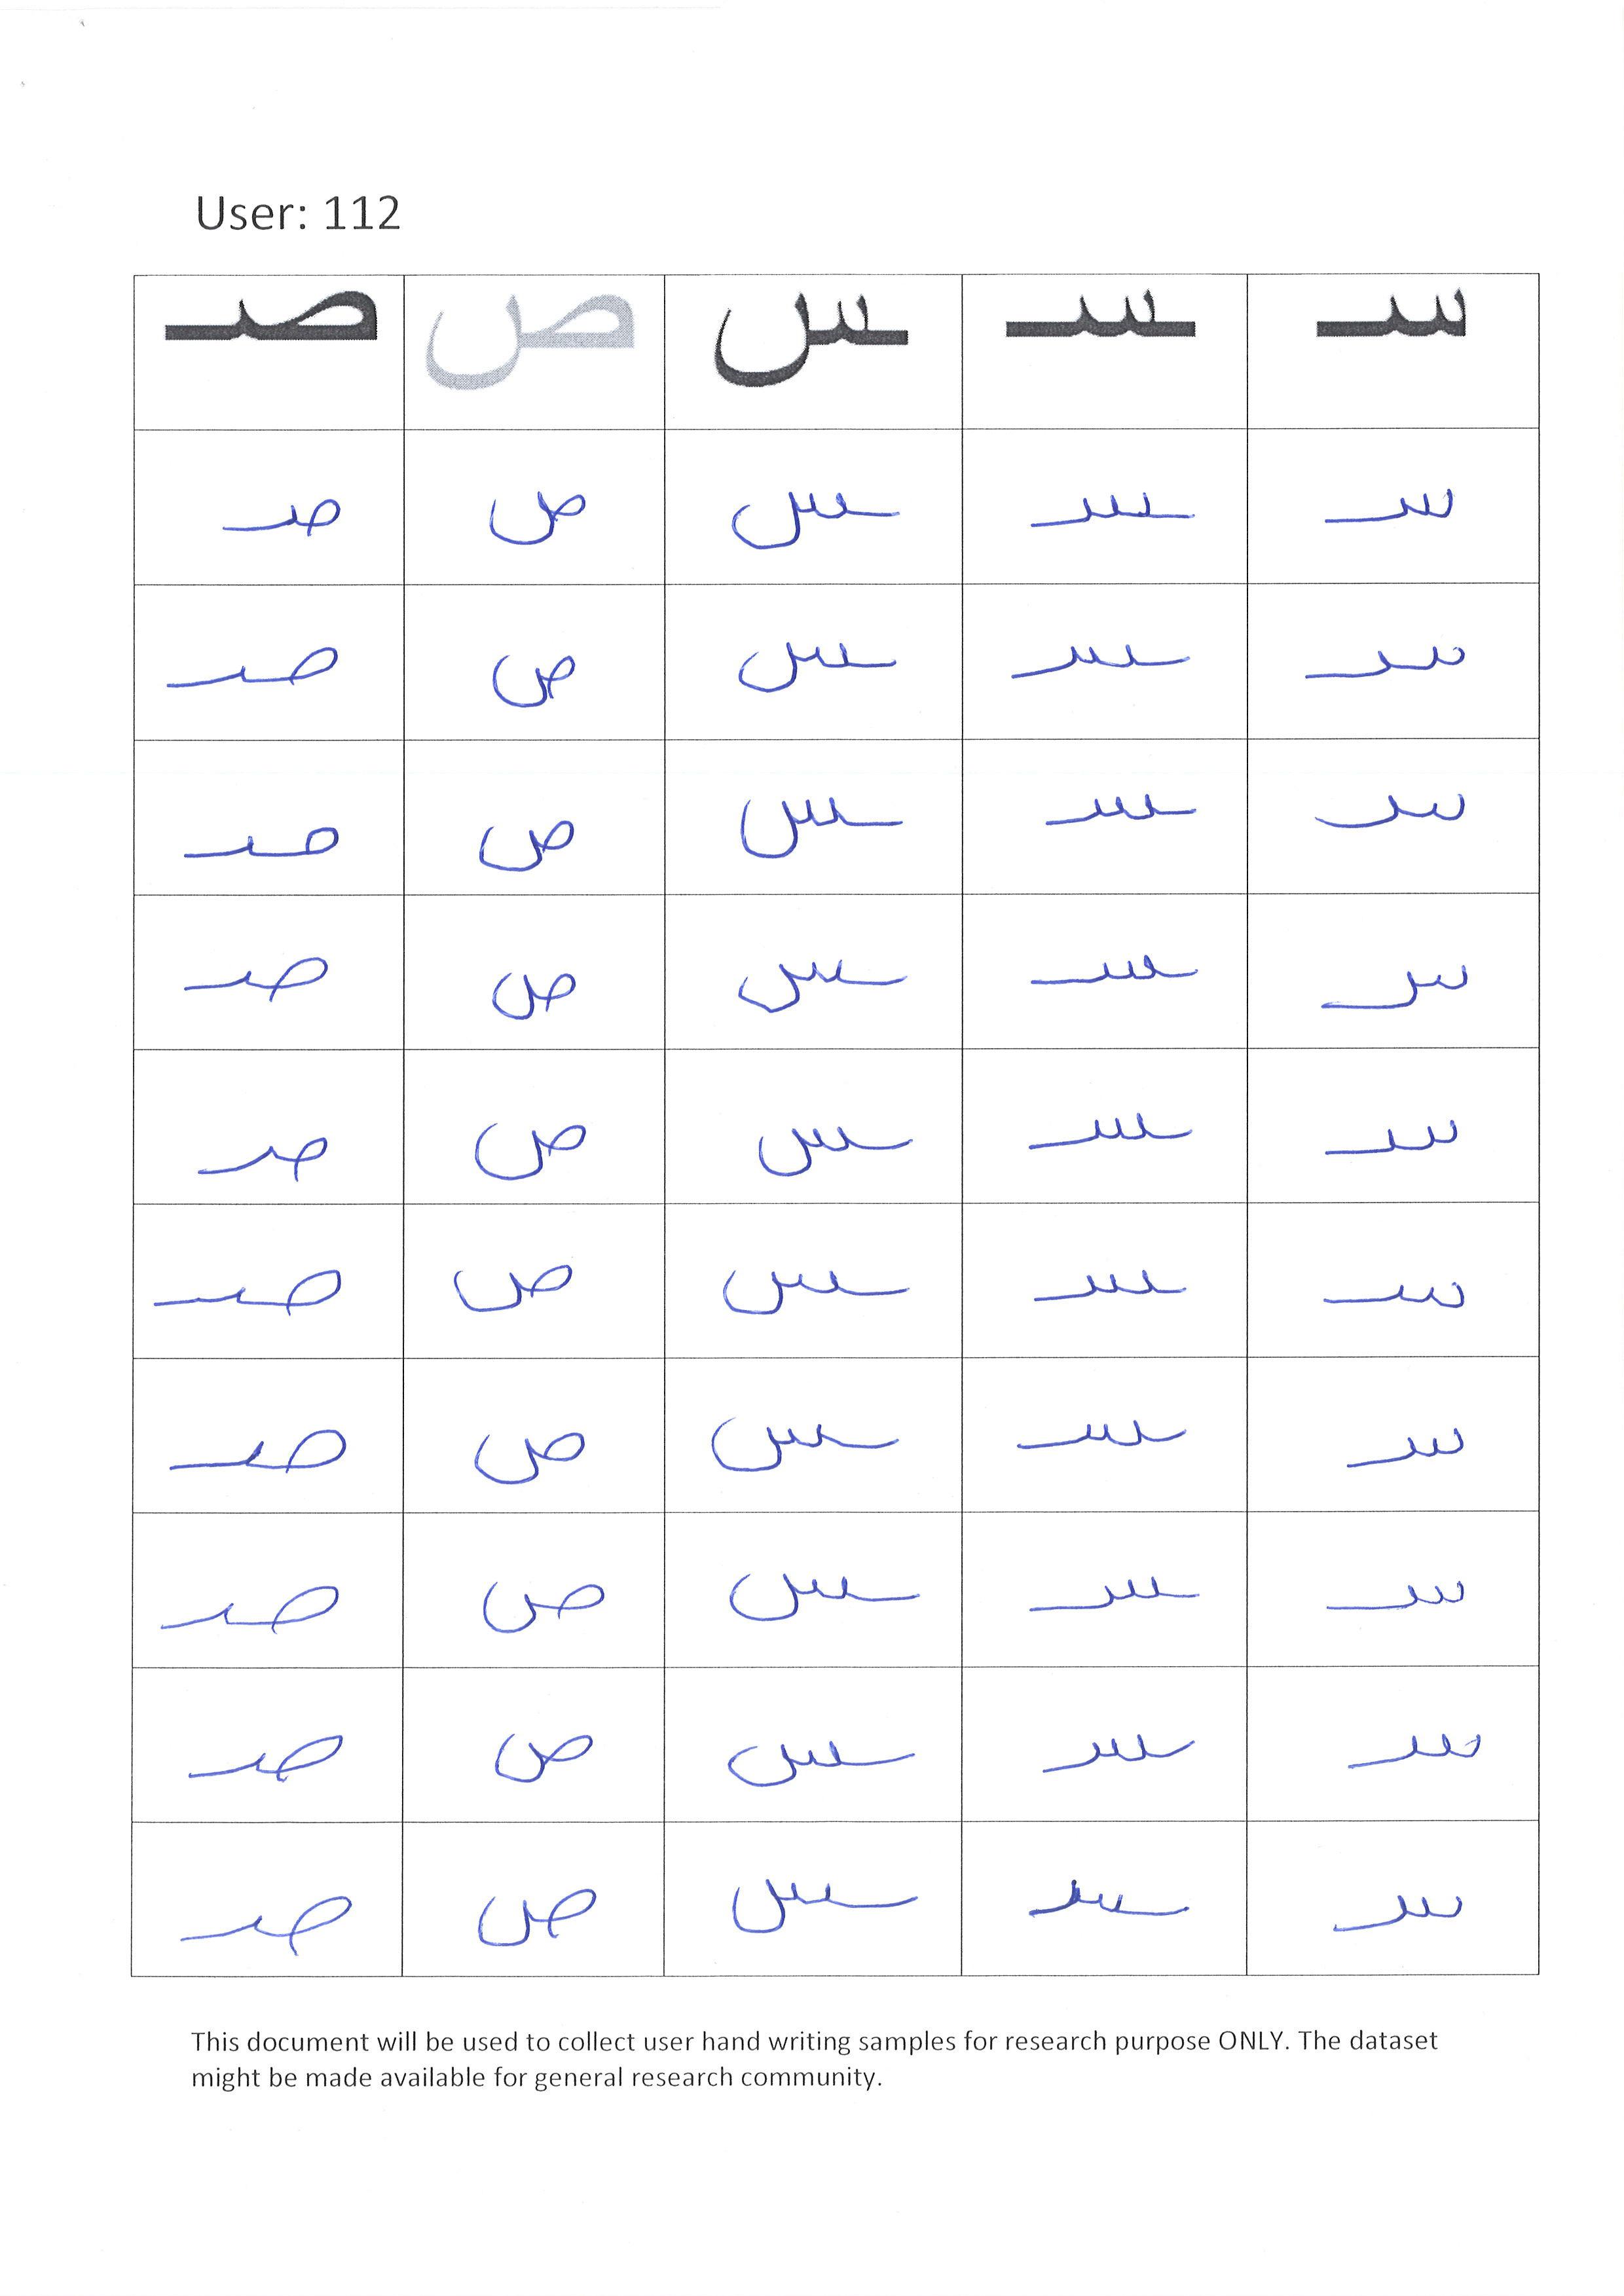 User: 112
سـ ـسـ ـس ص صـ
سـ ـسـ ـس ص صـ
سـ ـسـ ـس ص صـ
سـ ـسـ ـس ص صـ
سـ ـسـ ـس ص صـ
سـ ـسـ ـس ص صـ
سـ ـسـ ـس ص صـ
سـ ـسـ ـس ص صـ
سـ ـسـ ـس ص صـ
سـ ـسـ ـس ص صـ
سـ ـسـ ـس ص صـ
This document will be used to collect user hand writing samples for research purpose ONLY. The dataset
might be made available for general research community.